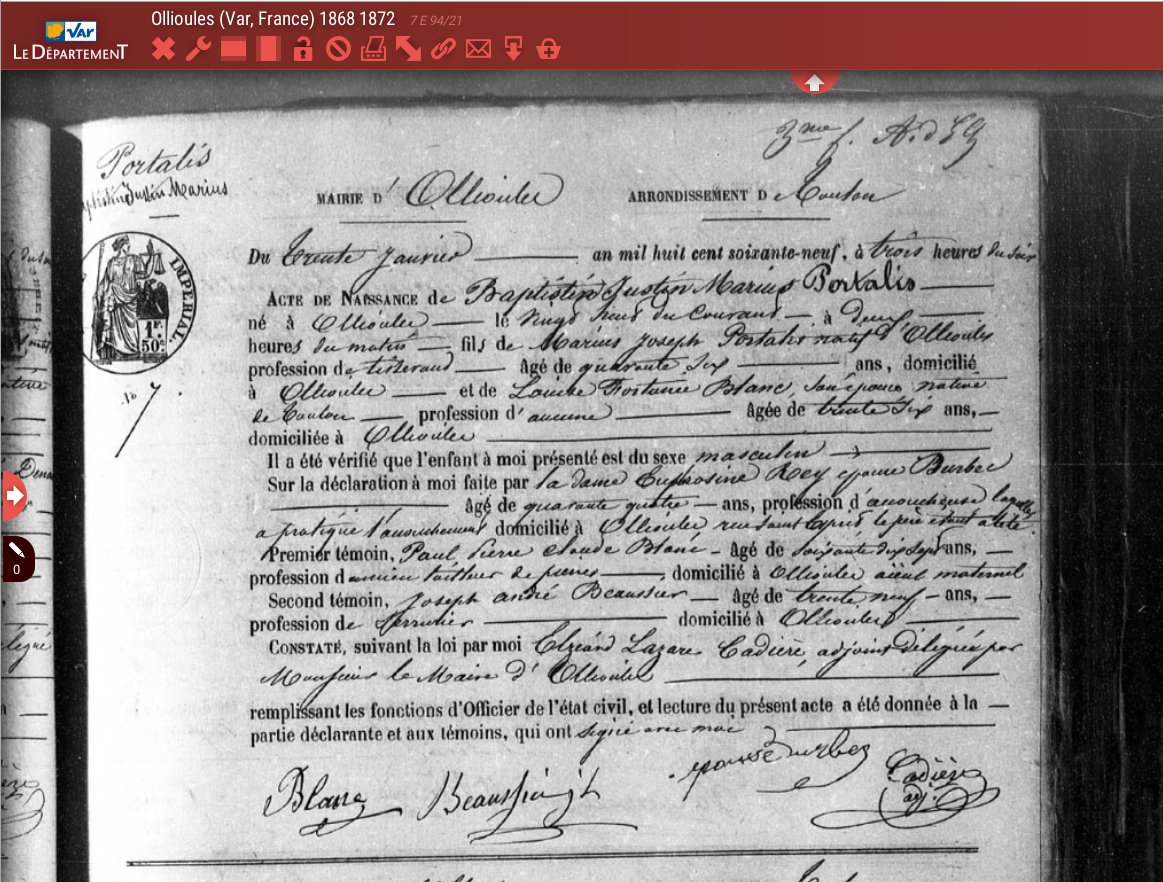 Ollioules (Var, France) 1868 1872 7 E 94/21
VAR
LE DÉPARTEMENT
3me f. A. d
Portalis
Justin Marius
MAIRIE D' Ollioules ARRONDISSEMENT D e Toulon
Du trente janvier an mil huit cent soixante-neuf, à trois heures du soir
ACTE DE NAISSANCE de Baptistin Justin Marius Portalis
IMPÉRIAL.
1F.
50c
né à Ollioules le vingt neuf du Courant à deux
heures du matin fils de Marius Joseph Portalis natif d'Ollioules
profession de tisserand âgé de quarante six ans, domicilié
No 7
à Ollioules et de Louise Fortunée Blanc, son épouse native
de Toulon profession d' aucune âgée de trente six ans,
domiciliée à Ollioules
Il a été vérifié que l'enfant à moi présenté est du sexe masculin
Sur la déclaration à moi faite par la dame Euphrosine Rey épouse Burbez
âgé de quarante quatre ans, profession d'accoucheuse laquelle
a pratiqué l'accouchement domicilié à Ollioules rue le père étant alité
Premier témoin, Paul Pierre Claude Blanc âgé de soixante dix sept ans,
profession d'ancien tailleur de pierres domicilié à Ollioules aïeul maternel
Second témoin, Joseph André Beaussier âgé de trente neuf ans,
profession de serrurier domicilié à Ollioules
CONSTATÉ, suivant la loi par moi Elzéard Lazare Cadière, adjoint délégué par
Monsieur le Maire d'Ollioules
remplissant les fonctions d'Officier de l'état civil, et lecture du présent acte a été donnée à la
partie déclarante et aux témoins, qui ont signé avec moi
Blanc Beaussier épouse Burbez Cadière
adj.
0